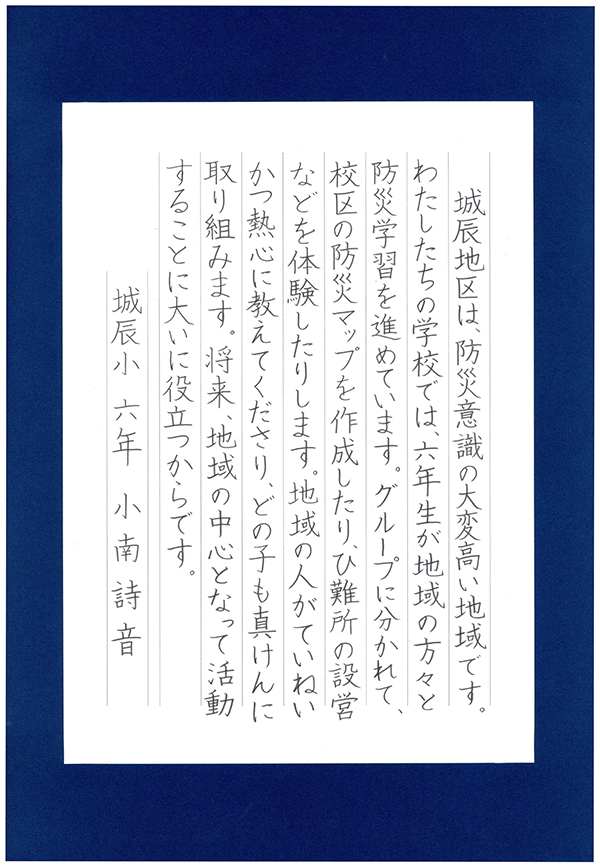 城辰地区は、防災意識の大変高い地域です。
わたしたちの学校では、六年生が地域の方々と
防災学習を進めています。グループに分かれて、
校区の防災マップを作成したり、ひ難所の設営
などを体験したりします。地域の人がていねい
かつ熱心に教えてくださり、どの子も真けんに
取り組みます。将来、地域の中心となって活動
することに大いに役立つからです。
城辰小 六年 小南詩音